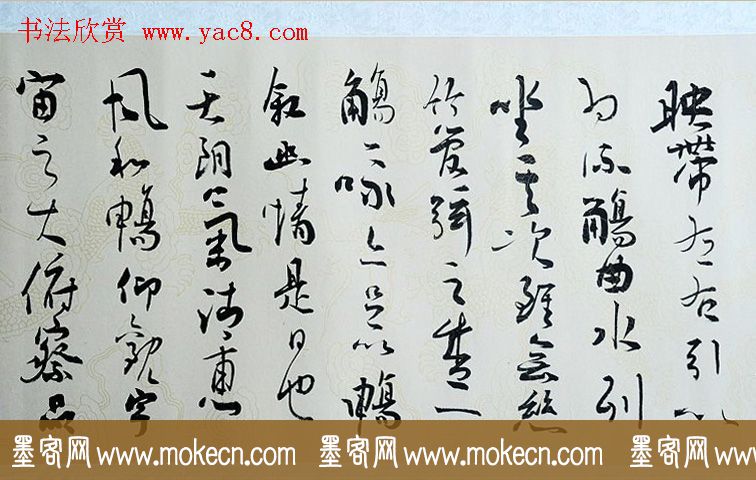 书法欣赏 www.yac8.com
映帶左右引以
為流觴曲水列
坐其次雖無絲
竹管弦之盛一
觴一咏亦足以暢
叙幽情是日也
天朗氣清惠
風和暢仰觀宇
宙之大俯察品
墨客网 www.mokecn.com 墨客网 www.mokecn.com 墨客网 www.m